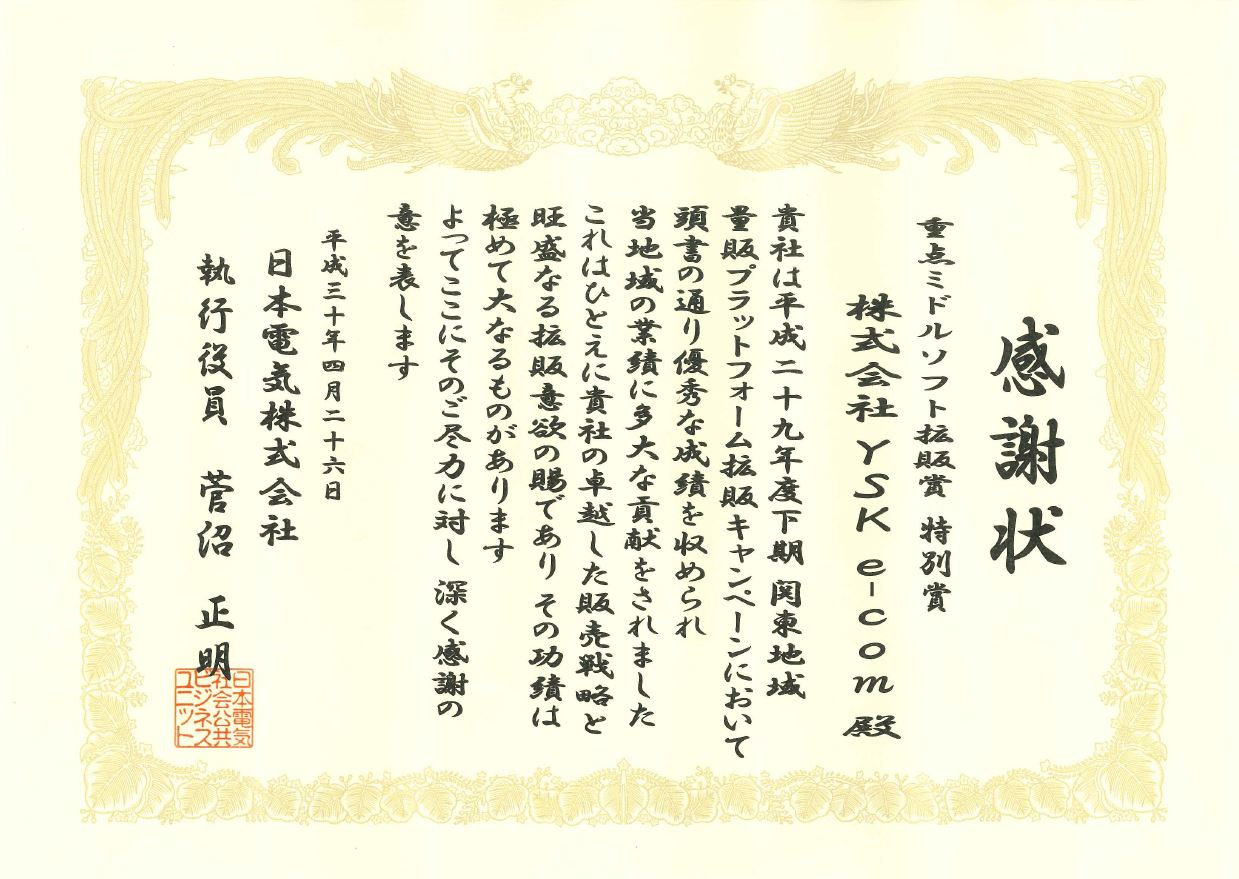 感謝状
重点ミドルソフト拡販賞 特別賞
株式会社YSK e-com 殿
貴社は平成二十九年度下期 関東地域
量販プラットフォーム拡販キャンペーンにおいて
頭書の通り優秀な成績を収められ
当地域の業績に多大な貢献をされました
これはひとえに貴社の卓越した販売戦略と
旺盛なる拡販意欲の賜であり その功績は
極めて大なるものがあります
よってここにそのご尽力に対し 深く感謝の
意を表します
平成三十年四月二十六日
日本電気株式会社
執行役員 菅沼 正明
日本電気
社会公共
ビジネス
ユニット